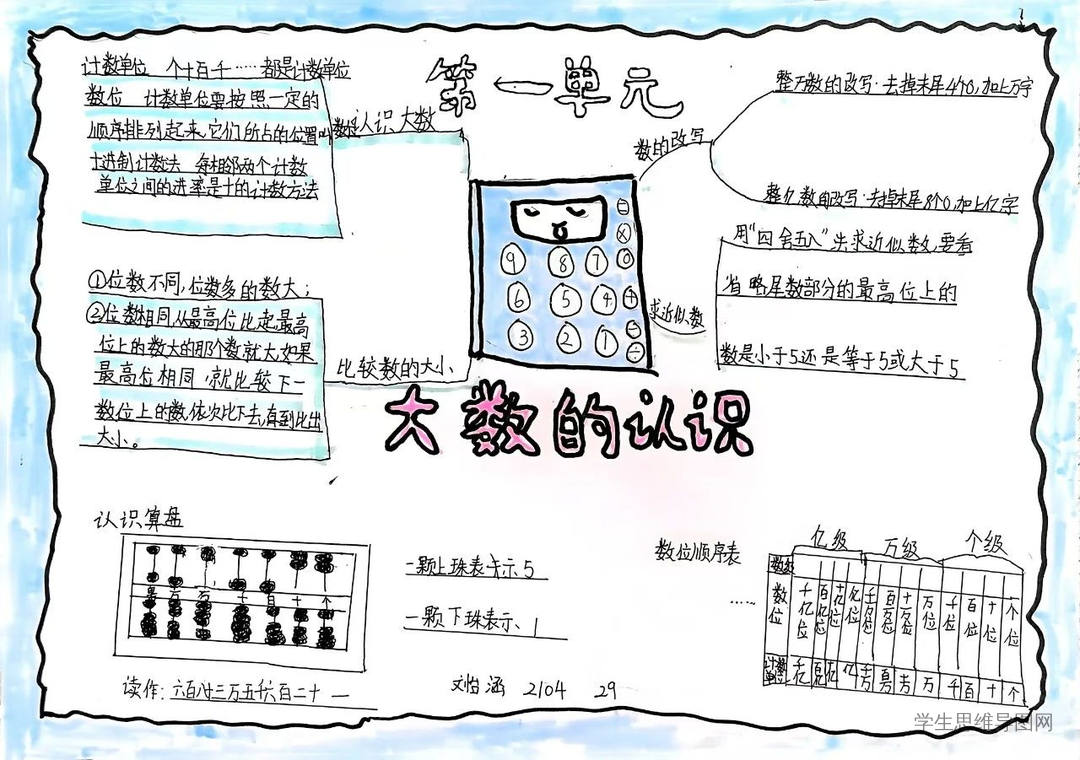 第一单元
大数的认识
认识大数
计数单位 个十百千……都是计数单位
数位 计数单位要按照一定的
顺序排列起来,它们所占的位置叫数位
十进制计数法 每相邻两个计数
单位之间的进率是十的计数方法
比较数的大小
①位数不同,位数多的数大;
②位数相同,从最高位比起,最高
位上的数大的那个数就大,如果
最高位相同,就比较下一
数位上的数,依次比下去,直到比出
大小。
数的改写
整万数的改写:去掉末尾4个0,加上万字
整亿数的改写:去掉末尾8个0,加上亿字
求近似数
用"四舍五入"法求近似数,要看
省略尾数部分的最高位上的
数是小于5还是等于5或大于5
9 8 7 0
6 5 4 +
3 2 1 -
÷
认识算盘
千 百 十 个
读作:六百
一颗上珠表示5
一颗下珠表示1
数位顺序表
亿级 万级 个级
数级
……
数位 千亿位 百亿位 十亿位 亿位 千万位 百万位 十万位 万位 千位 百位 十位 个位
计数单位 千亿 百亿 十亿 亿 千万 百万 十万 万 千 百 十 个
2104 29
学生思维导图网